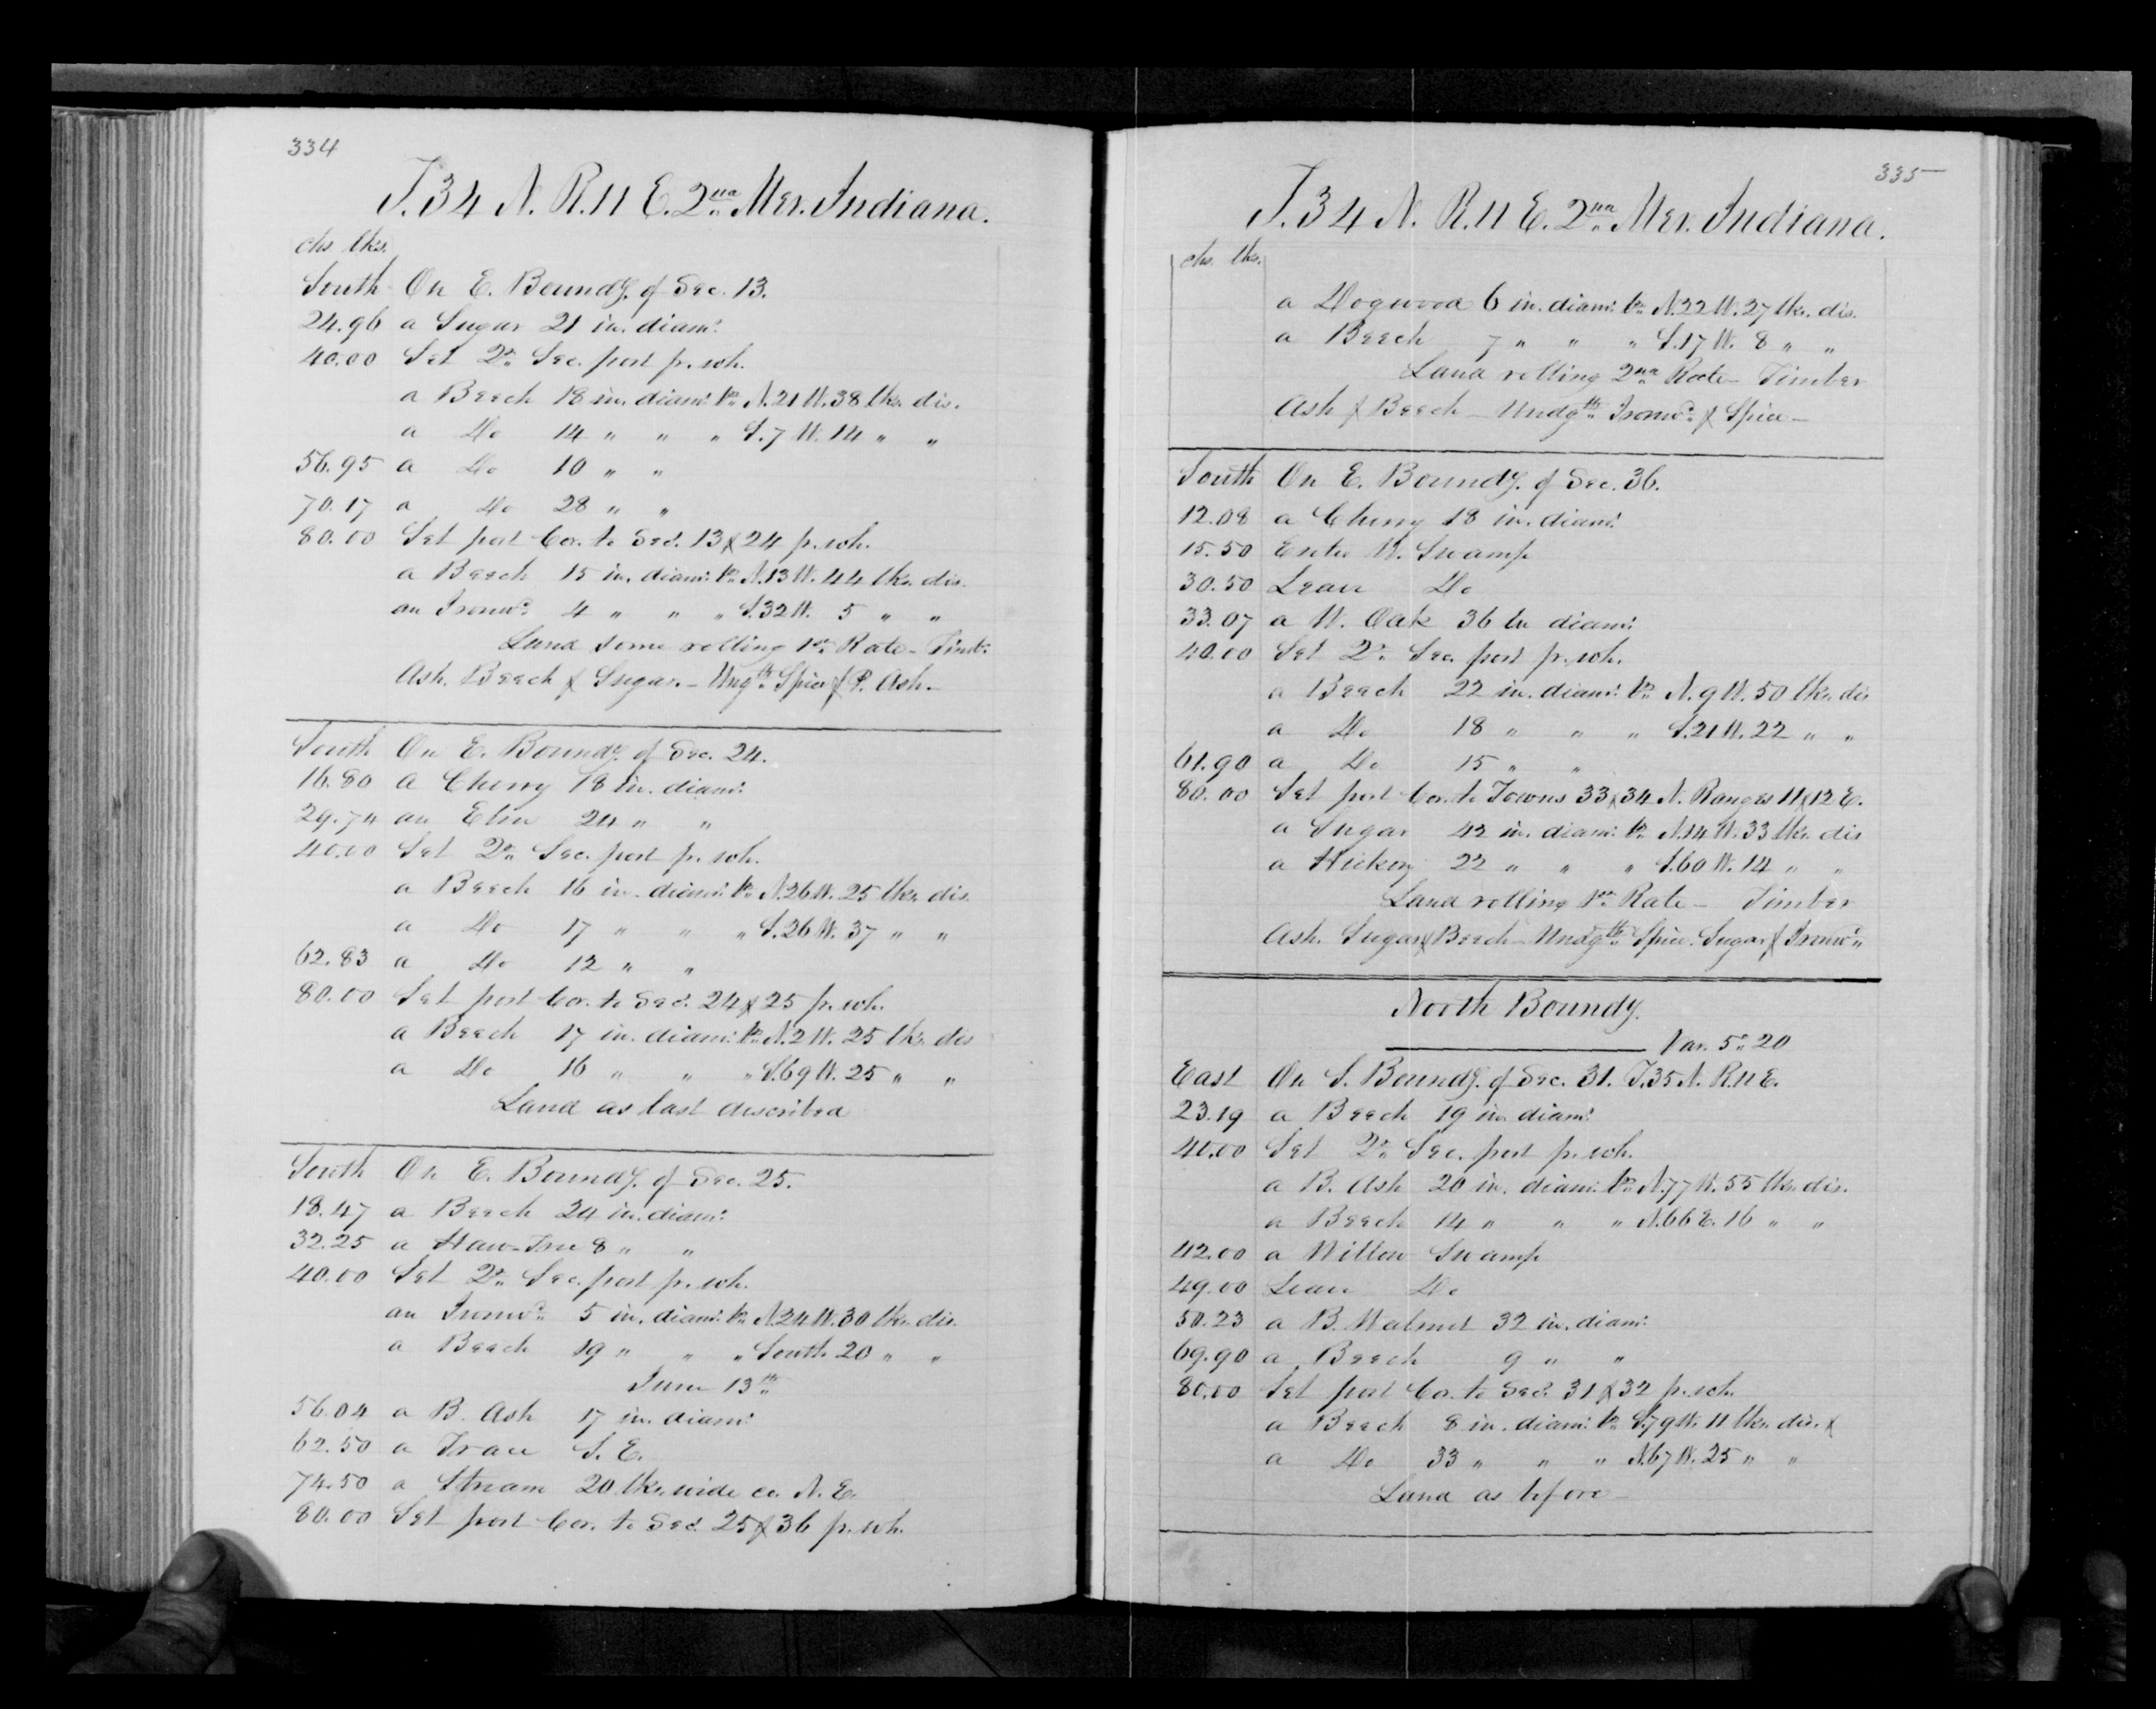 334
T. 34 N. R. 11 E. 2nd Mer. Indiana.
chs lks.
South On E. Boundy. of Sec. 13.
24.96 a Sugar 21 in. diamr.
40.00 Set Qr. Sec. post fr. wh.
a Beech 18 in. diamr. brs N. 21 W. 38 lks. dis.
a Do 14 " " " S. 7 W. 14 " "
56.95 a Do 10 " "
70.17 a Do 28 " "
80.00 Set post Cor. to Secs. 13 & 24 fr. wh.
a Beech 15 in. diamr. brs N. 13 W. 44 lks. dis.
an Ironwd. 4 " " " S. 32 W. 5 " "
Land some rolling 1st Rate - Timbr.
Ash. Beech & Sugar. - Ungth Spice & P. Ash. -
South On E. Boundy. of Sec. 24.
16.80 a Cherry 18 in. diamr.
29.74 an Elm 24 " "
40.00 Set Qr. Sec. post fr. wh.
a Beech 16 in. diamr. brs N. 26 W. 25 lks. dis.
a Do 17 " " " S. 26 W. 37 " "
62.83 a Do 12 " "
80.00 Set post Cor. to Secs. 24 & 25 fr. wh.
a Beech 17 in. diamr. brs N. 2 W. 25 lks. dis
a Do 16 " " " S. 69 W. 25 " "
Land as last described
South On E. Boundy. of Sec. 25.
18.47 a Beech 24 in. diamr.
32.25 a Haw-Tree 8 " "
40.00 Set Qr. Sec. post fr. wh.
an Ironwd. 5 in. diamr. brs N. 24 W. 30 lks. dis.
a Beech 19 " " " South 20 " "
June 13th
56.04 a B. Ash 17 in. diamr.
62.50 a Trace S. E.
74.50 a Stream 20 lks. wide co. N. E.
80.00 Set post Cor. to Secs. 25 & 36 fr. wh.
335
T. 34 N. R. 11 E. 2nd Mer. Indiana.
chs. lks.
a Dogwood 6 in. diamr. brs N. 22 W. 27 lks. dis.
a Beech 7 " " " S. 17 W. 8 " "
Land rolling 2nd Rate - Timber
Ash & Beech - Undgth Ironwd. & Spice -
South On E. Boundy. of Sec. 36.
12.08 a Cherry 18 in. diamr.
15.50 Enter W. Swamp
30.50 Leave Do
33.07 a W. Oak 36 in diamr.
40.00 Set Qr. Sec. post fr. wh.
a Beech 22 in. diamr. brs N. 9 W. 50 lks. dis
a Do 18 " " " S. 21 W. 22 " "
61.90 a Do 15 " "
80.00 Set post Cor. to Towns 33 & 34 N. Ranges 11 & 12 E.
a Sugar 42 in. diamr. brs N. 14 W. 33 lks. dis
a Hickory 22 " " " S. 60 W. 14 " "
Land rolling 1st Rate - Timber
Ash. Sugar & Beech - Undgth Spice. Sugar & Ironwd.
North Boundy.
Var. 5° 20
East On S. Boundy. of Sec. 31. T. 35 N. R. 11 E.
23.19 a Beech 19 in. diamr.
40.00 Set Qr. Sec. post fr. wh.
a B. Ash 20 in. diamr. brs N. 77 W. 55 lks. dis.
a Beech 14 " " " N. 66 E. 16 " "
42.00 a Willow Swamp
49.00 Leave Do
50.23 a B. Walnut 32 in. diamr.
69.90 a Beech 9 " "
80.00 Set post Cor. to Secs. 31 & 32 fr. wh.
a Beech 8 in. diamr. brs S. 79 W. 11 lks. dis. &
a Do 33 " " " N. 67 W. 25 " "
Land as before -